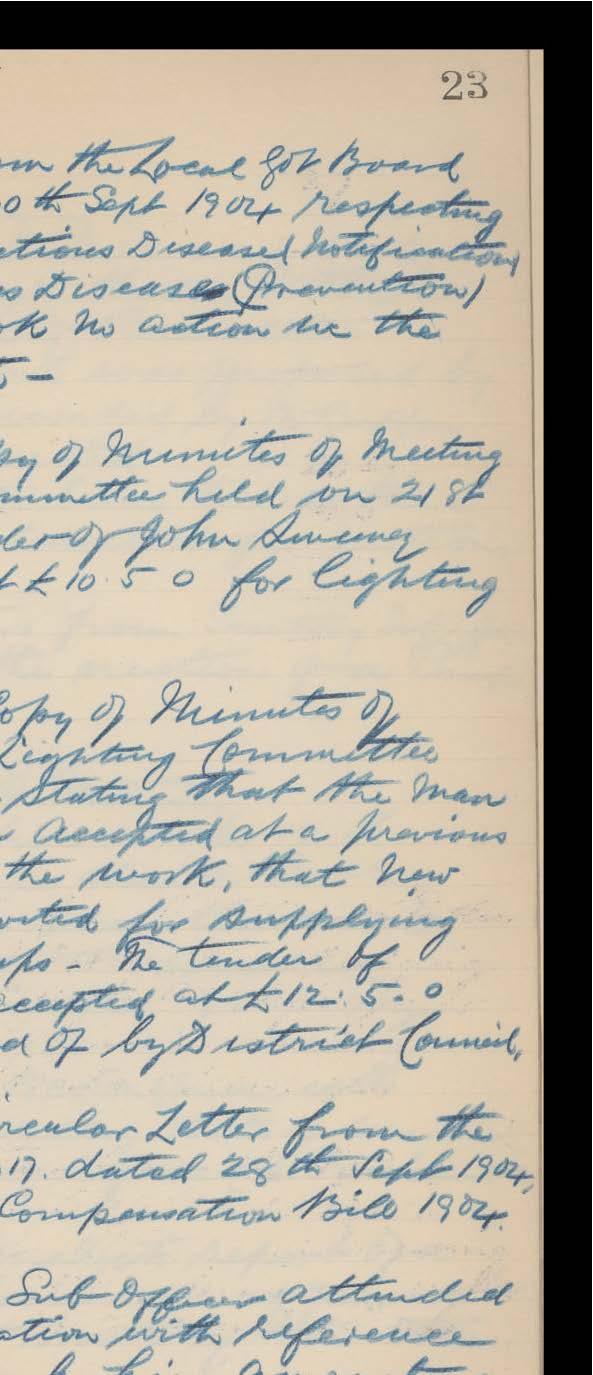 23
the Local Gov Board
0th Sept 1904 respecting
ctious Disease (Notification)
s Diseases (Prevention)
ok no action in the
py of Minutes of Meeting
mmittee held on 21st
der of John Sweeney
£10.5 0 for lighting
opy of Minutes of
Lighting Committee
stating that the man
accepted at a previous
the work, that new
for supplying
ps - The tender of
ccepted at £12:5.0
d of by District Council,
ircular Letter from the
17. dated 28th Sept 1904,
Compensation Bill 1904.
Sub Officer attended
ation with reference